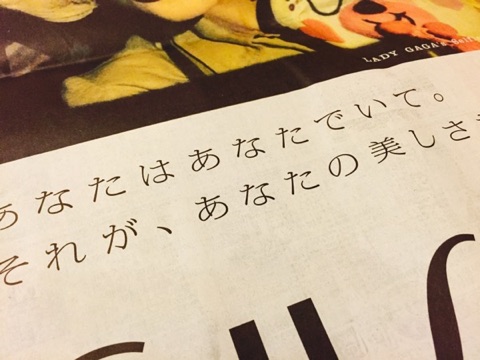 LADY GAGA
あなたはあなたでいて。
それが、あなたの美しさ